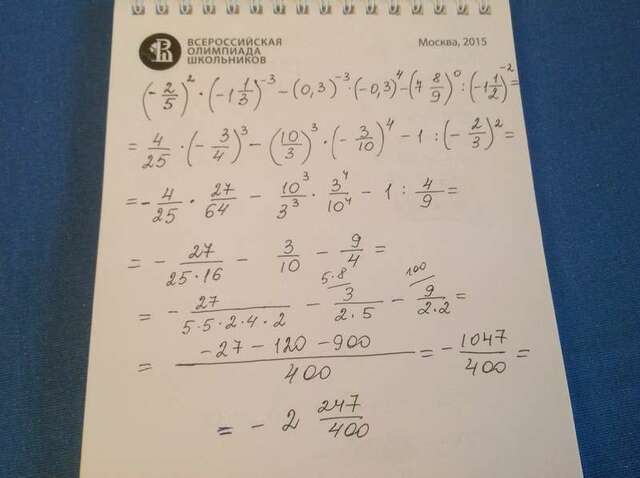 ВСЕРОССИЙСКАЯ
ОЛИМПИАДА
ШКОЛЬНИКОВ
Москва, 2015
(-2/5)² · (-1 1/3)⁻³ - (0,3)⁻³ · (-0,3)⁴ - (7 8/9)⁰ : (-1 1/2)⁻² =
= 4/25 · (-3/4)³ - (10/3)³ · (-3/10)⁴ - 1 : (-2/3)² =
= - 4/25 · 27/64 - 10³/3³ · 3⁴/10⁴ - 1 : 4/9 =
= - 27/25·16 - 3/10 - 9/4 =
5·8 100
= - 27/5·5·2·4·2 - 3/2·5 - 9/2·2 =
= -27-120-900/400 = - 1047/400 =
= - 2 247/400